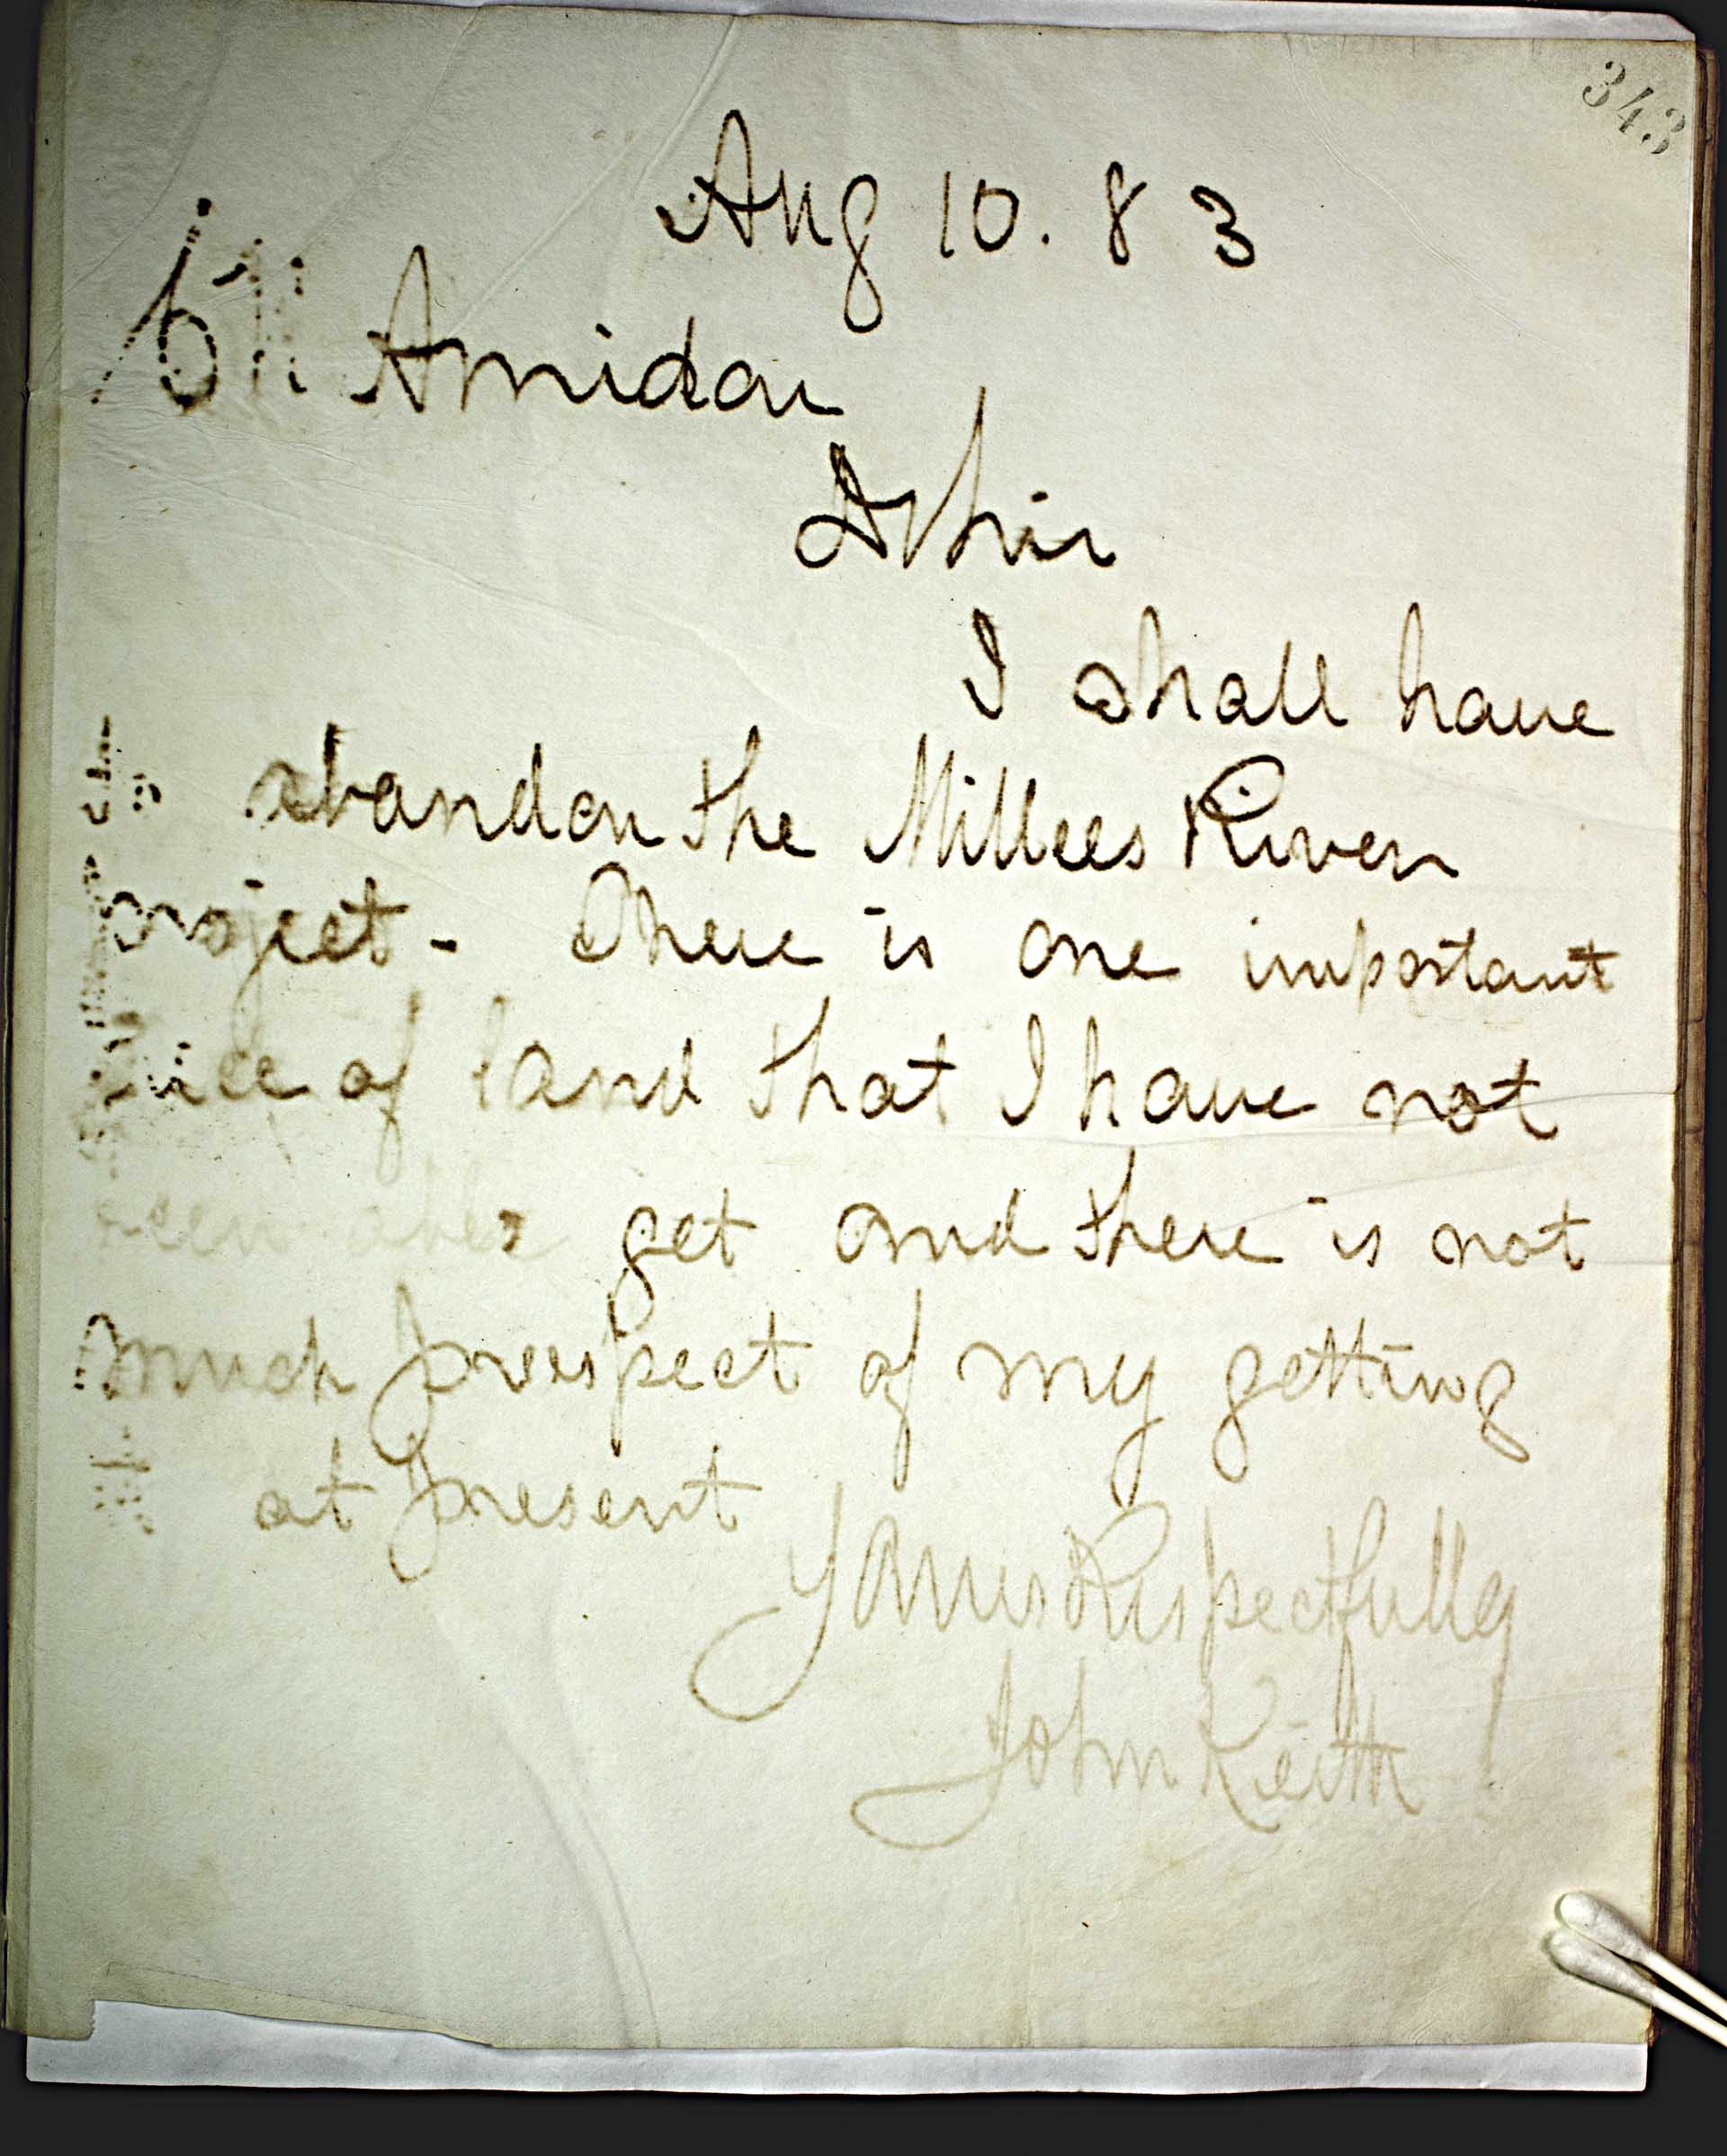 343
Aug 10. 83
Amidon
D Sir
I shall have
to abandon the Millers River
project - There is one important
piece of land that I have not
been able to get and there is not
much prospect of my getting
it at present
Yours Respectfully
John Keith